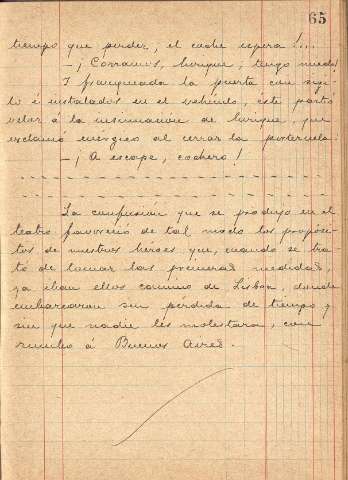 65
tiempo que perder, el coche espera!...
—¡Corramos, Enrique, tengo miedo!
I franqueada la puerta con sigi-
lo é instalados en el vehículo, éste partió
veloz á la insinuación de Enrique, que
exclamó enérgico al cerrar la portezuela:
—¡A escape, cochero!
La confusión que se produjo en el
teatro favoreció de tal modo los propósi-
tos de nuestros héroes que, cuando se tra-
tó de tomar las primeras medidas,
ya iban ellos camino de Lisboa, donde
embarcaron sin pérdida de tiempo y
sin que nadie les molestara, con
rumbo á Buenos Aires.